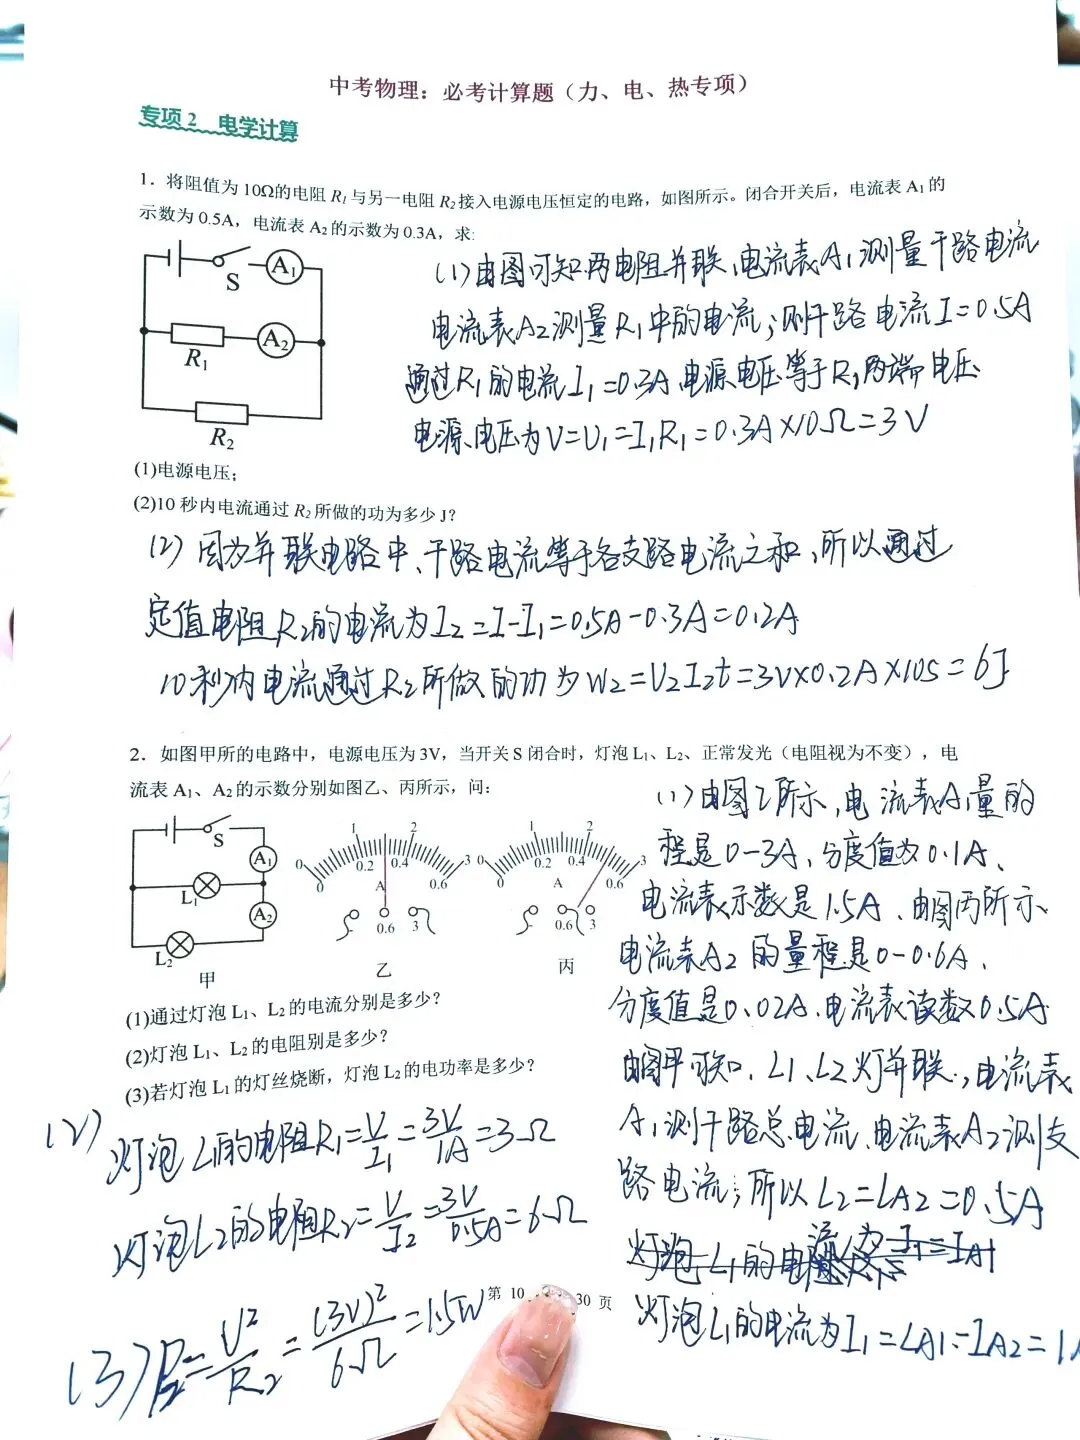 中考物理：必考计算题（力、电、热专项）
专项 2　电学计算
1．将阻值为 10Ω的电阻 R₁ 与另一电阻 R₂ 接入电源电压恒定的电路，如图所示。闭合开关后，电流表 A₁ 的
示数为 0.5A，电流表 A₂ 的示数为 0.3A，求:
S
A₁
R₁
A₂
R₂
(1)由图可知两电阻并联、电流表A₁测量干路电流
电流表A₂测量R₁中的电流；则干路电流I=0.5A
通过R₁的电流I₁=0.3A 电源电压等于R₁两端电压
电源电压为V=U₁=I₁R₁=0.3A×10Ω=3V
(1)电源电压；
(2)10 秒内电流通过 R₂ 所做的功为多少 J？
(2) 因为并联电路中、干路电流等于各支路电流之和、所以通过
定值电阻R₂的电流为I₂=I-I₁=0.5A-0.3A=0.2A
10秒内电流通过R₂所做的功为W₂=U₂I₂t=3V×0.2A×10S=6J
2．如图甲所的电路中，电源电压为 3V，当开关 S 闭合时，灯泡 L₁、L₂、正常发光（电阻视为不变），电
流表 A₁、A₂ 的示数分别如图乙、丙所示，问：
S
A₁
L₁
A₂
L₂
甲
0 1 2 3
0 0.2 0.4 0.6
A
0.6 3
乙
0 1 2 3
0 0.2 0.4 0.6
A
0.6 3
丙
(1)由图乙所示、电流表A₁量的
程是0-3A、分度值为0.1A、
电流表示数是1.5A、由图丙所示、
电流表A2的量程是0-0.6A、
分度值是0.02A、电流表读数0.5A
由图甲可知、L1、L2灯并联、电流表
A₁测干路总电流、电流表A2测支
路电流；所以L2=LA2=0.5A
灯泡L₁的电流为I₁=LA1-IA2=1
(1)通过灯泡 L₁、L₂ 的电流分别是多少？
(2)灯泡 L₁、L₂ 的电阻别是多少？
(3)若灯泡 L₁ 的灯丝烧断，灯泡 L₂ 的电功率是多少？
(2) 灯泡L₁的电阻R₁=V/I₁=3V/1A=3Ω
灯泡L2的电阻R₂=V/I2=3V/0.5A=6Ω
(3) P₂=U²/R₂=(3V)²/6Ω=1.5W
第 10 30 页